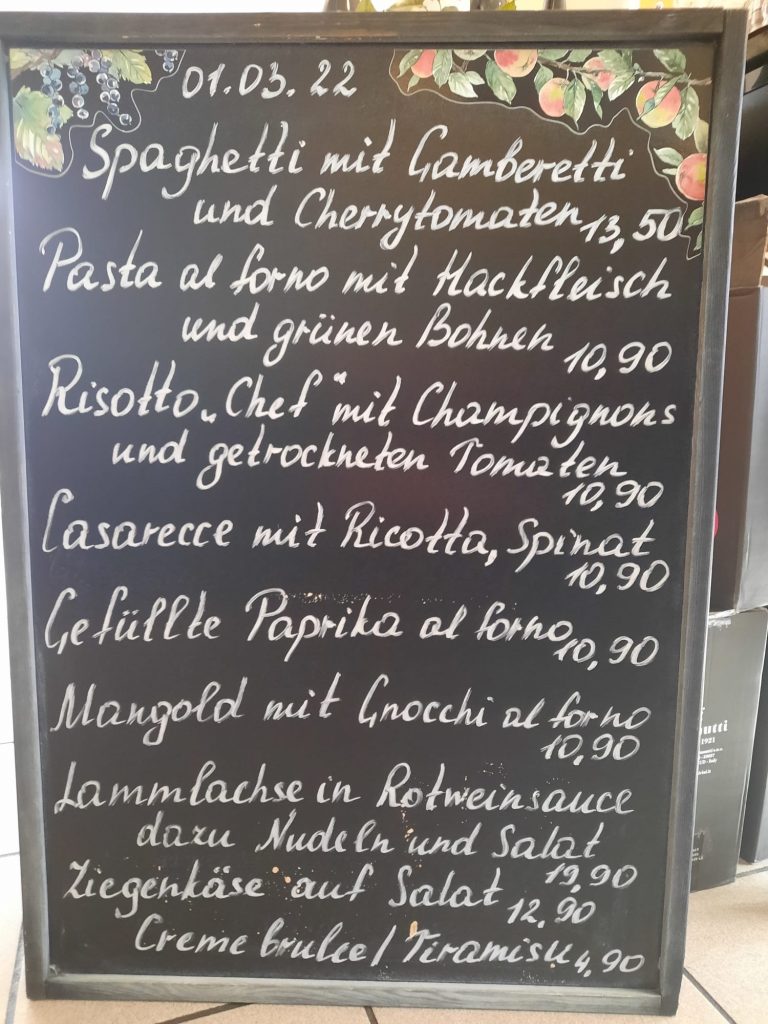 01.03.22
Spaghetti mit Gamberetti
und Cherrytomaten 13,50
Pasta al forno mit Hackfleisch
und grünen Bohnen 10,90
Risotto „Chef“ mit Champignons
und getrockneten Tomaten
10,90
Casarecce mit Ricotta, Spinat
10,90
Gefüllte Paprika al forno 10,90
Mangold mit Gnocchi al forno
10,90
Lammlachse in Rotweinsauce
dazu Nudeln und Salat
19,90
Ziegenkäse auf Salat 12,90
Creme brulee/Tiramisu 4,90
1921